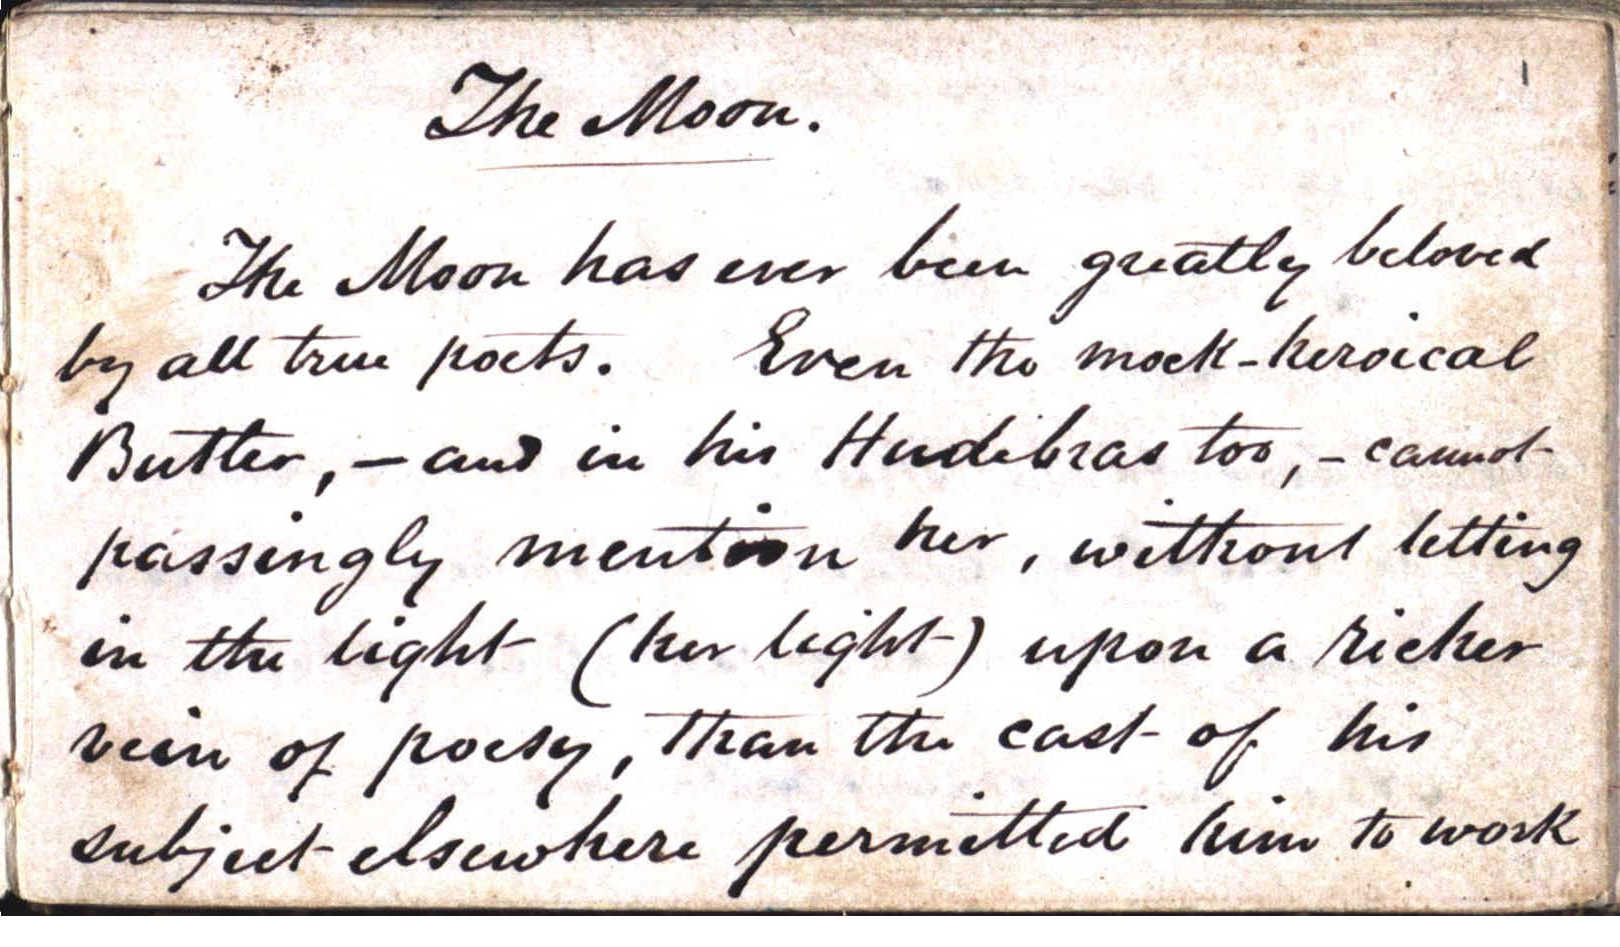 1
The Moon.
The Moon has ever been greatly beloved
by all true poets. Even the mock-heroical
Butler, — and in his Hudibras too, - cannot
passingly mention her, without letting
in the light (her light) upon a richer
vein of poesy, than the cast of his
subject elsewhere permitted him to work